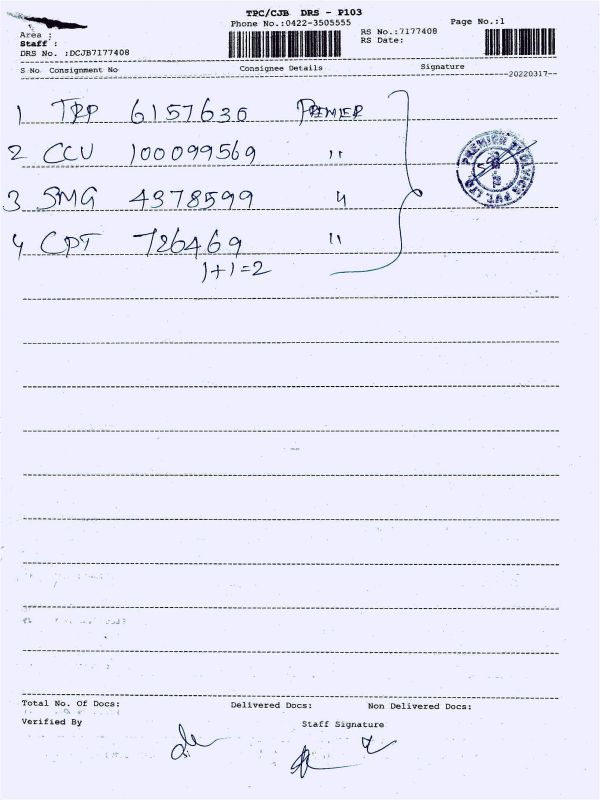 TPC/CJB DRS - P103
Phone No.:0422-3505555
Page No.:1
Area :
RS No.:7177408
Staff :
RS Date:
DRS No. :DCJB7177408
S No Consignment No Consignee Details Signature
--20220317--
1 TRP 6157636 PREMIER
2 CCU 100099569 "
3 SMG 4378599 "
4 CPT 726469 "
1+1=2
PREMIER EVOLVICS PVT LTD
Total No. Of Docs: Delivered Docs: Non Delivered Docs:
Verified By Staff Signature